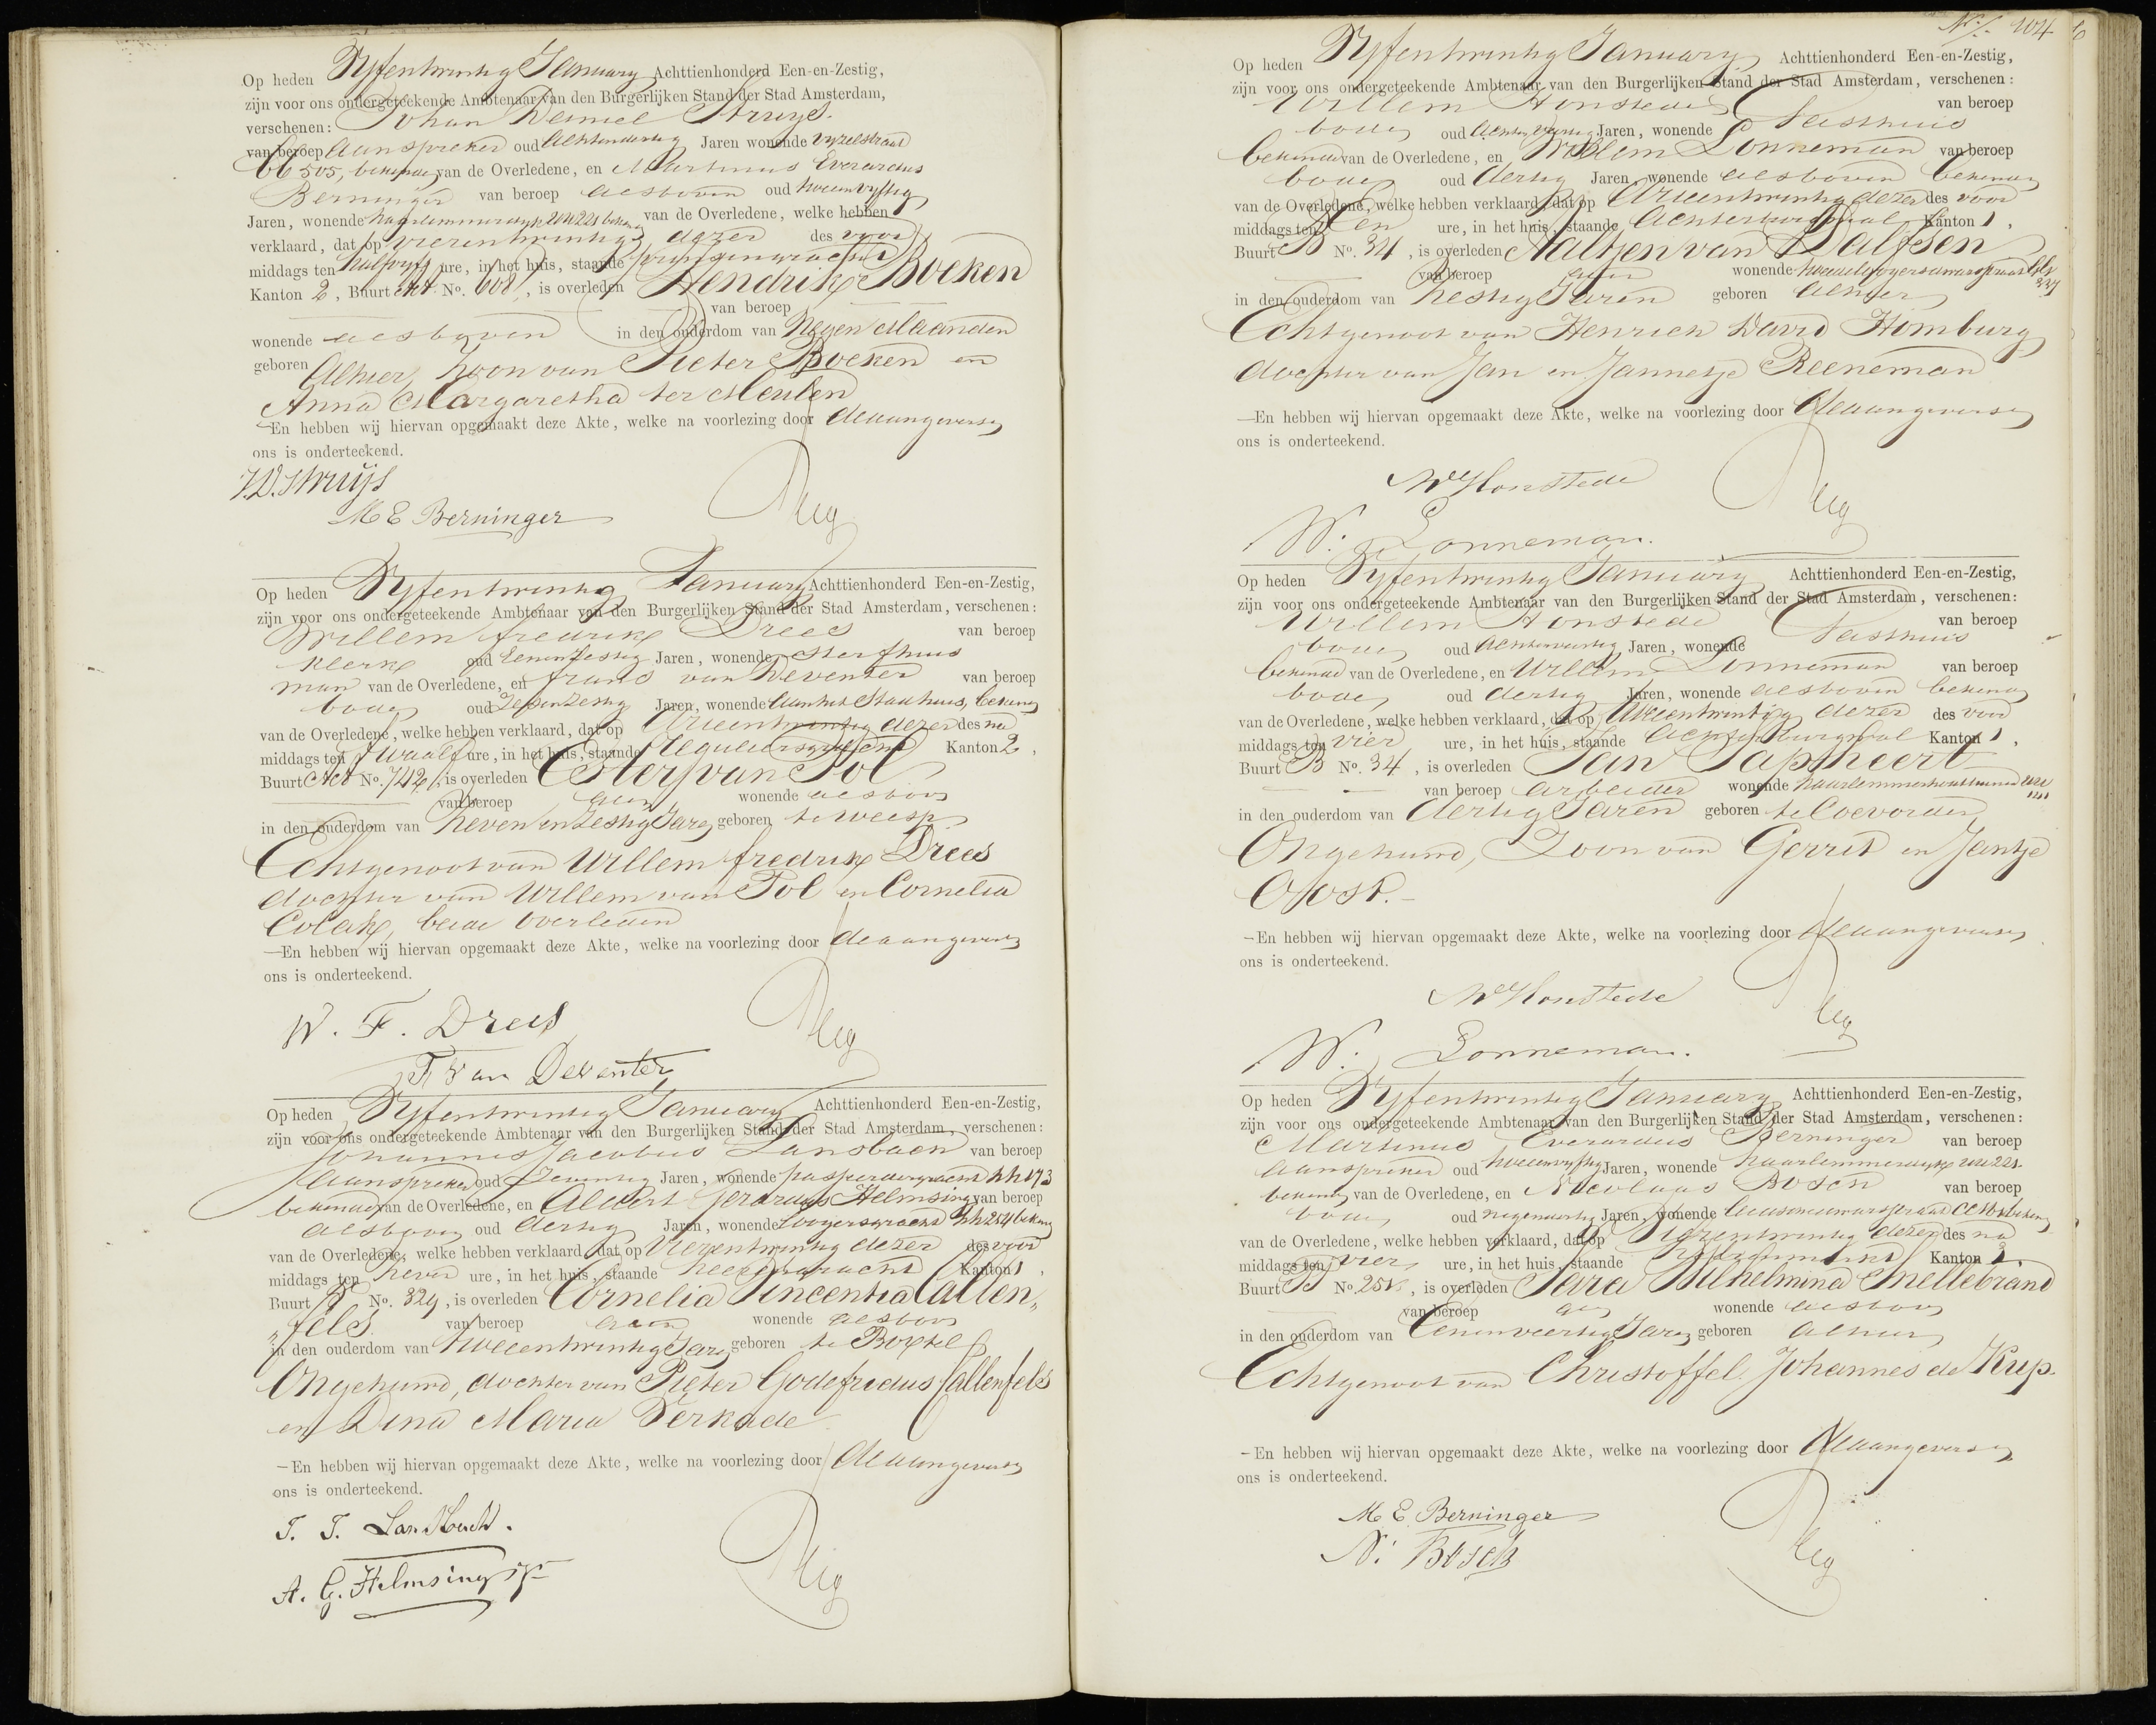 Op heden Vyfentwintig January Achttienhonderd Een-en-Zestig,
zijn voor ons ondergeteekende Ambtenaar van den Burgerlijken Stand der Stad Amsterdam,
verschenen: Johan Struys.
van beroep Aanspreker oud Achtendertig Jaren wonende Vyzelstraat
505, bekende van de Overledene, en Martinus Everardus
Berninger van beroep als boven oud tweenvyftig
Jaren, wonende haarlemmerdyk van de Overledene, welke hebben
verklaard, dat op vierentwintig dezer des voor
middags ten half vyf ure, in het huis, staande prinsengracht
Kanton 2, Buurt No. 608, is overleden Hendrik Boeken
van beroep
wonende als boven in den ouderdom van Negen Maanden
geboren Alhier, Zoon van Pieter Boeken en
Anna Margaretha ter Meulen
—En hebben wij hiervan opgemaakt deze Akte, welke na voorlezing door de aangevers en
ons is onderteekend.
J.D. Struijs
M E Berninger
Op heden Vyfentwintig January Achttienhonderd Een-en-Zestig,
zijn voor ons ondergeteekende Ambtenaar van den Burgerlijken Stand der Stad Amsterdam, verschenen:
Willem fredrik Drees van beroep
klerk oud Eenenzestig Jaren, wonende Sterfhuis
man van de Overledene, en frans van Deventer van beroep
bode oud Jaren, wonende aan het Stadhuis, bekende
van de Overledene, welke hebben verklaard, dat op Drieentwintig dezer des na
middags ten Twaalf ure, in het huis, staande Reguliersgracht Kanton 2,
Buurt No. is overleden Ester van Pol
van beroep geen wonende als boven
in den ouderdom van Zeven en Zestig Jaren geboren te Weesp
Echtgenoot van Willem fredrik Drees
dochter van Willem van Pol en Cornelia
beide overleden
—En hebben wij hiervan opgemaakt deze Akte, welke na voorlezing door de aangevers en
ons is onderteekend.
W. F. Drees
F van Deventer
Op heden Vyfentwintig January Achttienhonderd Een-en-Zestig,
zijn voor ons ondergeteekende Ambtenaar van den Burgerlijken Stand der Stad Amsterdam, verschenen:
Johannes Jacobus van beroep
Aanspreker oud Zeventig Jaren, wonende 173
bekende van de Overledene, en Albert Gerardus Helmsing van beroep
als boven oud dertig Jaren, wonende Looyersgracht 254 bekende
van de Overledene, welke hebben verklaard, dat op Vierentwintig dezer des voor
middags ten Zeven ure, in het huis, staande heeregracht Kanton 1,
Buurt No. 329, is overleden Cornelia Vincentia Callen„
„fels van beroep geen wonende als boven
in den ouderdom van Tweeentwintig Jaren geboren te Boxtel
Ongehuwd, dochter van Pieter Godefridus Callenfels
en Dina Maria Verkade
—En hebben wij hiervan opgemaakt deze Akte, welke na voorlezing door de aangevers en
ons is onderteekend.
A. G. Helmsing
No. 104
Op heden Vyfentwintig January Achttienhonderd Een-en-Zestig,
zijn voor ons ondergeteekende Ambtenaar van den Burgerlijken Stand der Stad Amsterdam, verschenen:
Willem Honstede van beroep
bode oud Jaren, wonende Gasthuis
bekende van de Overledene, en Willem Lonneman van beroep
bode oud dertig Jaren, wonende als boven bekende
van de Overledene, welke hebben verklaard, dat op Drieentwintig dezer des voor
middags ten Een ure, in het huis, staande Achterburgwal Kanton 1,
Buurt B No. 34, is overleden Aaltjen van Dalfsen
van beroep geen wonende
in den ouderdom van Zestig Jaren geboren alhier
Echtgenoot van Henrich David Homburg
dochter van Jan en Jannetje Reeneman
—En hebben wij hiervan opgemaakt deze Akte, welke na voorlezing door de aangevers en
ons is onderteekend.
W Honstede
W. Lonneman.
Op heden Vyfentwintig January Achttienhonderd Een-en-Zestig,
zijn voor ons ondergeteekende Ambtenaar van den Burgerlijken Stand der Stad Amsterdam, verschenen:
Willem Honstede van beroep
bode oud Jaren, wonende Gasthuis
bekende van de Overledene, en Willem Lonneman van beroep
bode oud dertig Jaren, wonende als boven bekende
van de Overledene, welke hebben verklaard, dat op Drieentwintig dezer des voor
middags ten vier ure, in het huis, staande Achterburgwal Kanton 1,
Buurt B No. 34, is overleden Jan
van beroep arbeider wonende
in den ouderdom van dertig Jaren geboren te Coevorden
Ongehuwd, Zoon van Gerrit en Jantje
Oost.—
—En hebben wij hiervan opgemaakt deze Akte, welke na voorlezing door de aangevers en
ons is onderteekend.
W Honstede
W. Lonneman.
Op heden Vyfentwintig January Achttienhonderd Een-en-Zestig,
zijn voor ons ondergeteekende Ambtenaar van den Burgerlijken Stand der Stad Amsterdam, verschenen:
Martinus Everardus Berninger van beroep
Aanspreker oud tweeenvyftig Jaren, wonende haarlemmerdyk
bekende van de Overledene, en Nicolaas Bosch van beroep
bode oud Jaren, wonende
van de Overledene, welke hebben verklaard, dat op Vierentwintig dezer des na
middags ten vier ure, in het huis, staande Kanton
Buurt B No. is overleden Sara Wilhelmina Snellebrand
van beroep geen wonende als boven
in den ouderdom van Eenenveertig Jaren geboren alhier
Echtgenoot van Christoffel Johannes de Kup.
—En hebben wij hiervan opgemaakt deze Akte, welke na voorlezing door de aangevers en
ons is onderteekend.
M E Berninger
N. Bosch